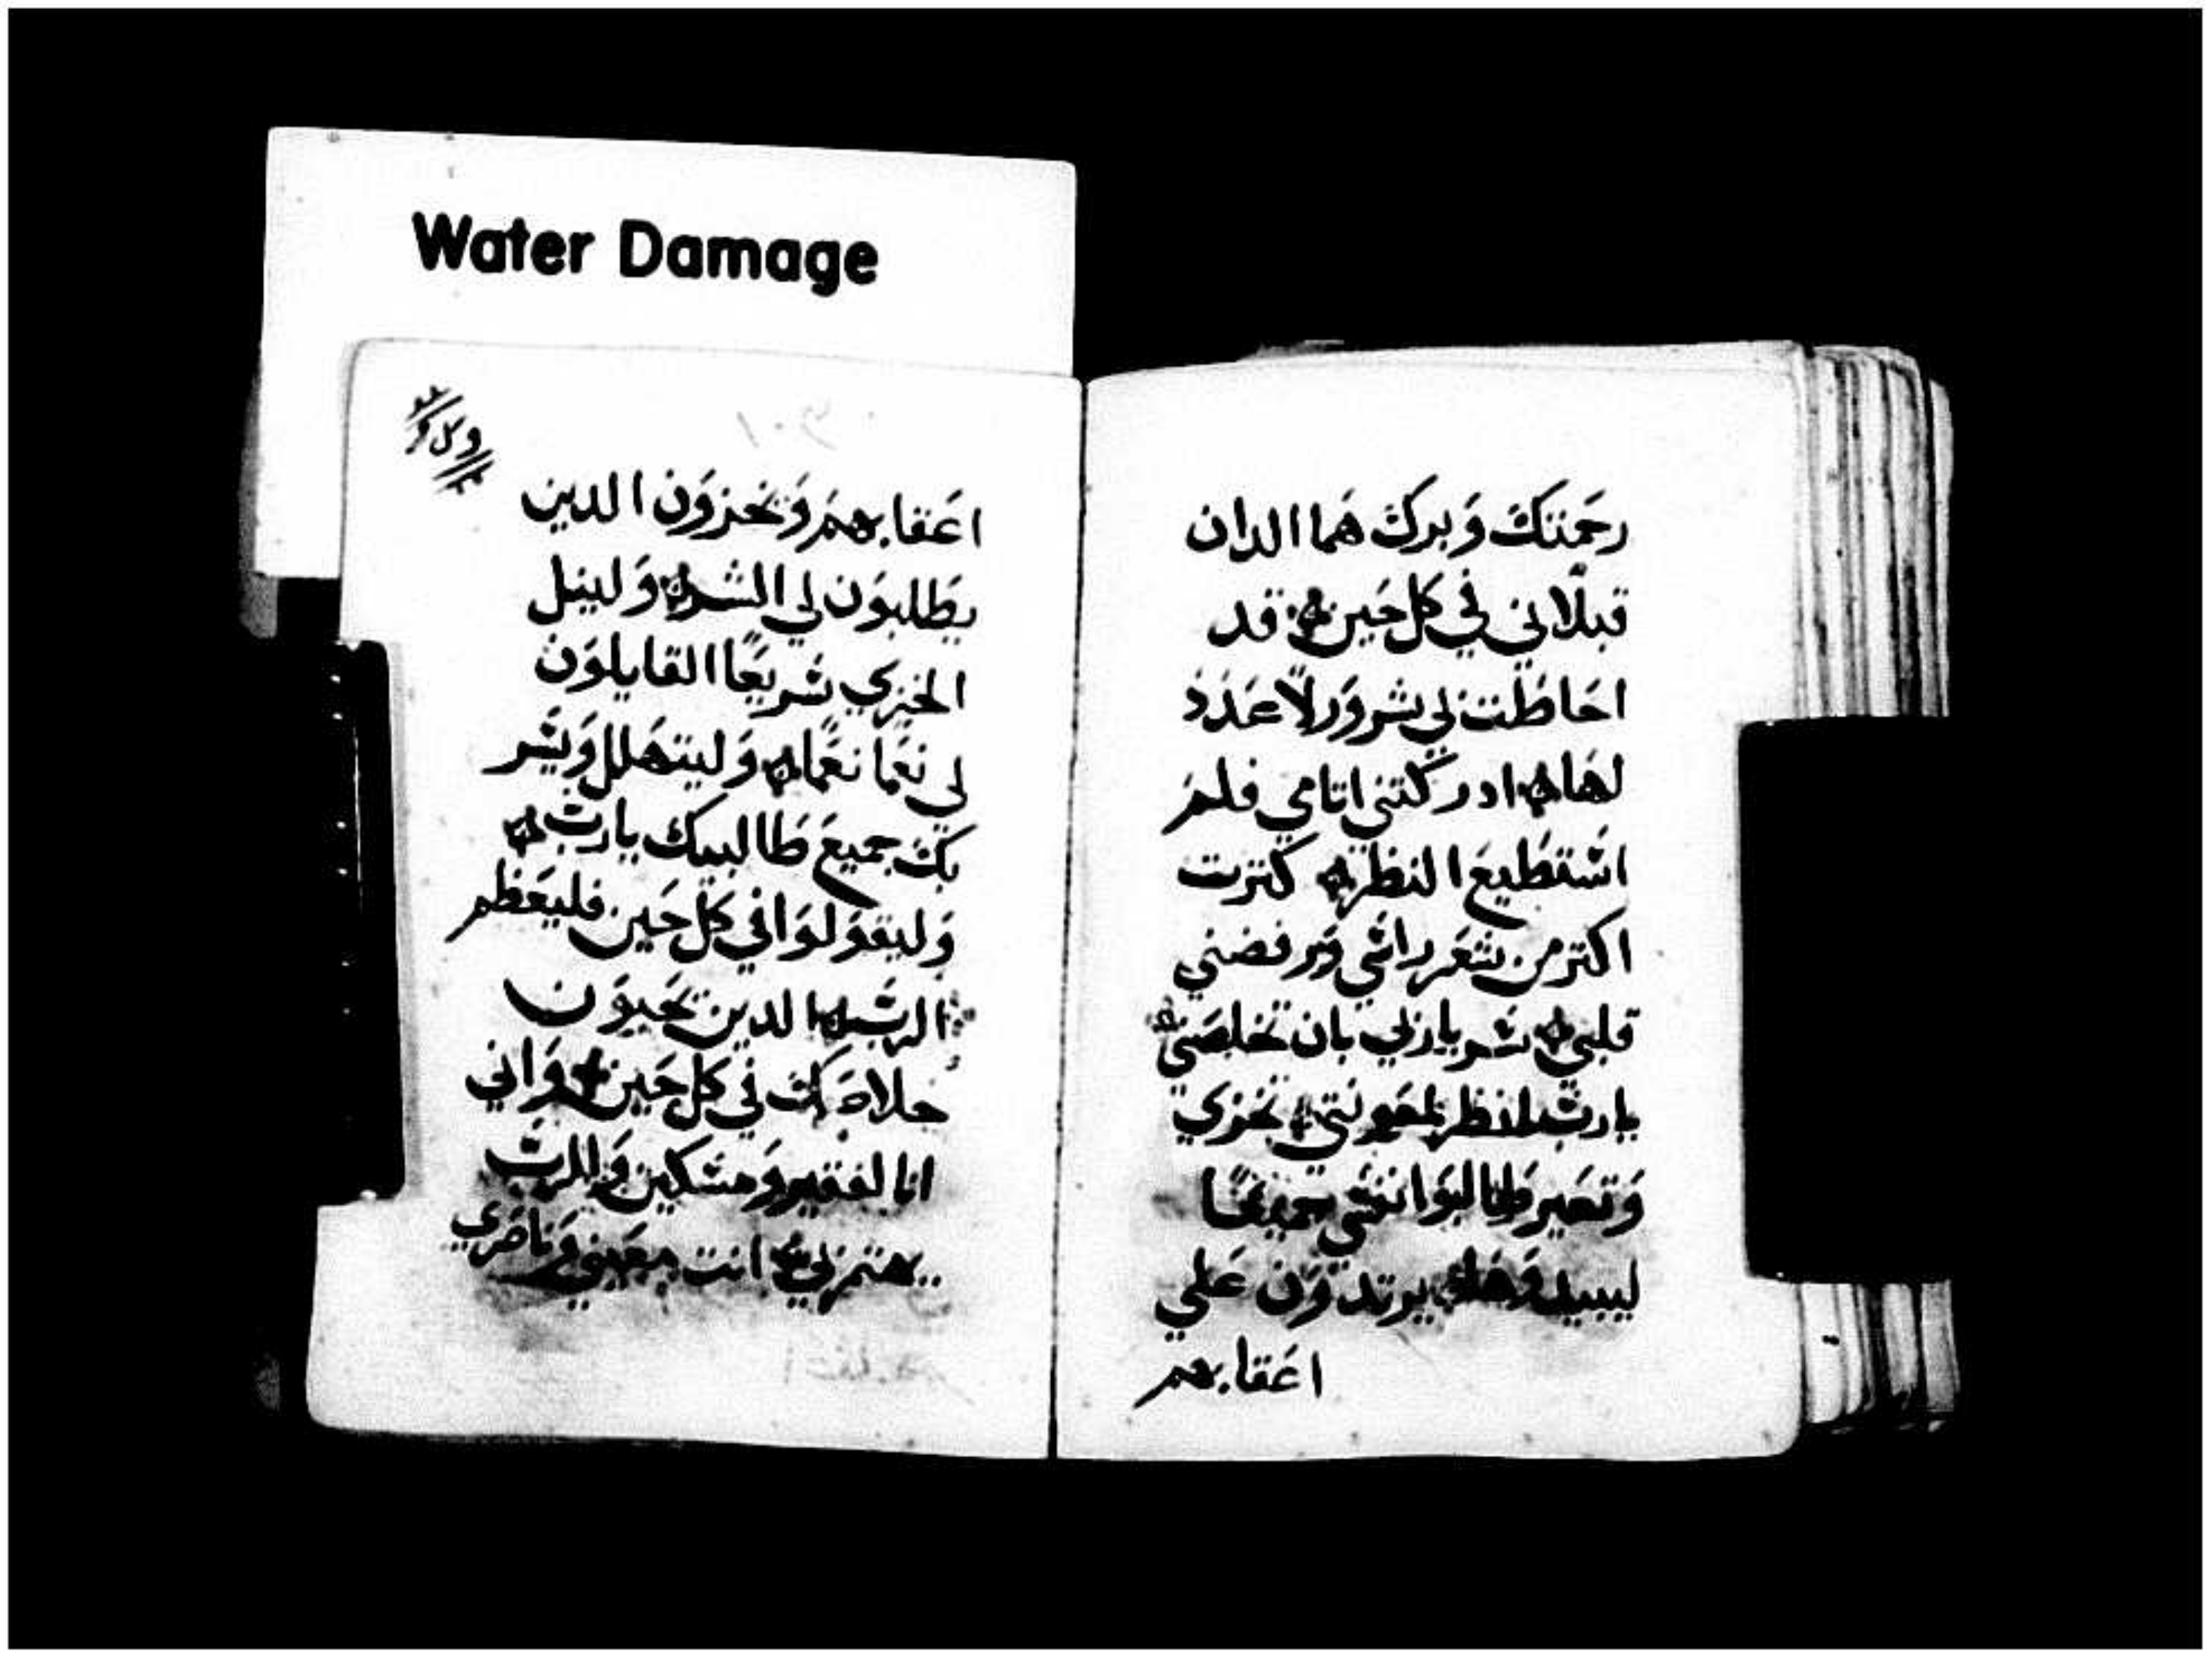 Water Damage
رحمتك وبرك هما الدان
قبلاني في كل حين قد
احاطت بي شرور لا عدد
لها ادركتني اتامي فلم
استطيع النظر كترت
اكتر من شعر راسي ورفضني
قلبي سر يا رب بان تخلصني
يا رب انظر لمعونتي يخزي
وتصير طالبوا نفسي جميعا
ليبيد وهاك يرتدون علي
اعقابهم
اعقابهم ويخزون الدين
يطلبون لي الشر ولينيل
الخزي سريعا القايلون
لي نعما نعما وليتهلل ويسر
بك جميع طالبيك يا رب
وليقولوا في كل حين فليعظم
الرب الدين يحبون
خلاصك في كل حين واني
انا لفقير ومسكين والرب
يهتم بي انت معيني وناصري